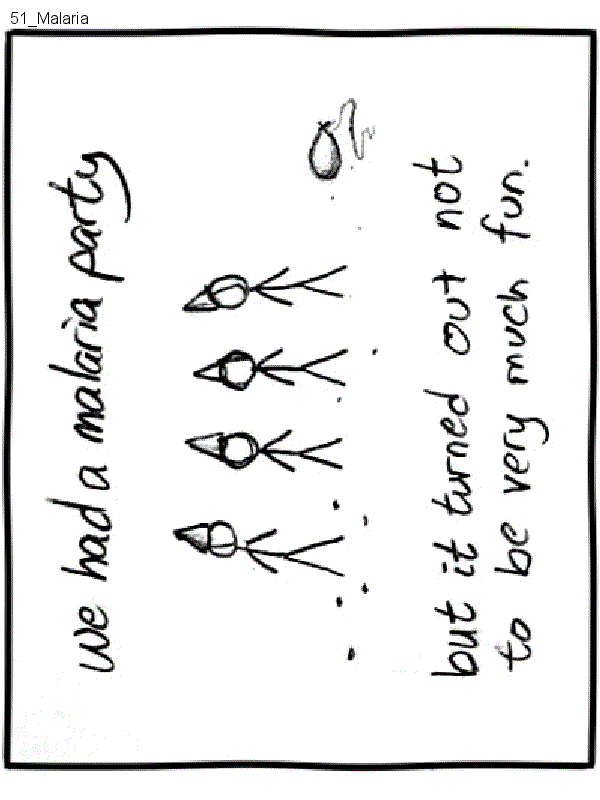 51_Malaria
we had a malaria party
but it turned out not
to be very much fun.